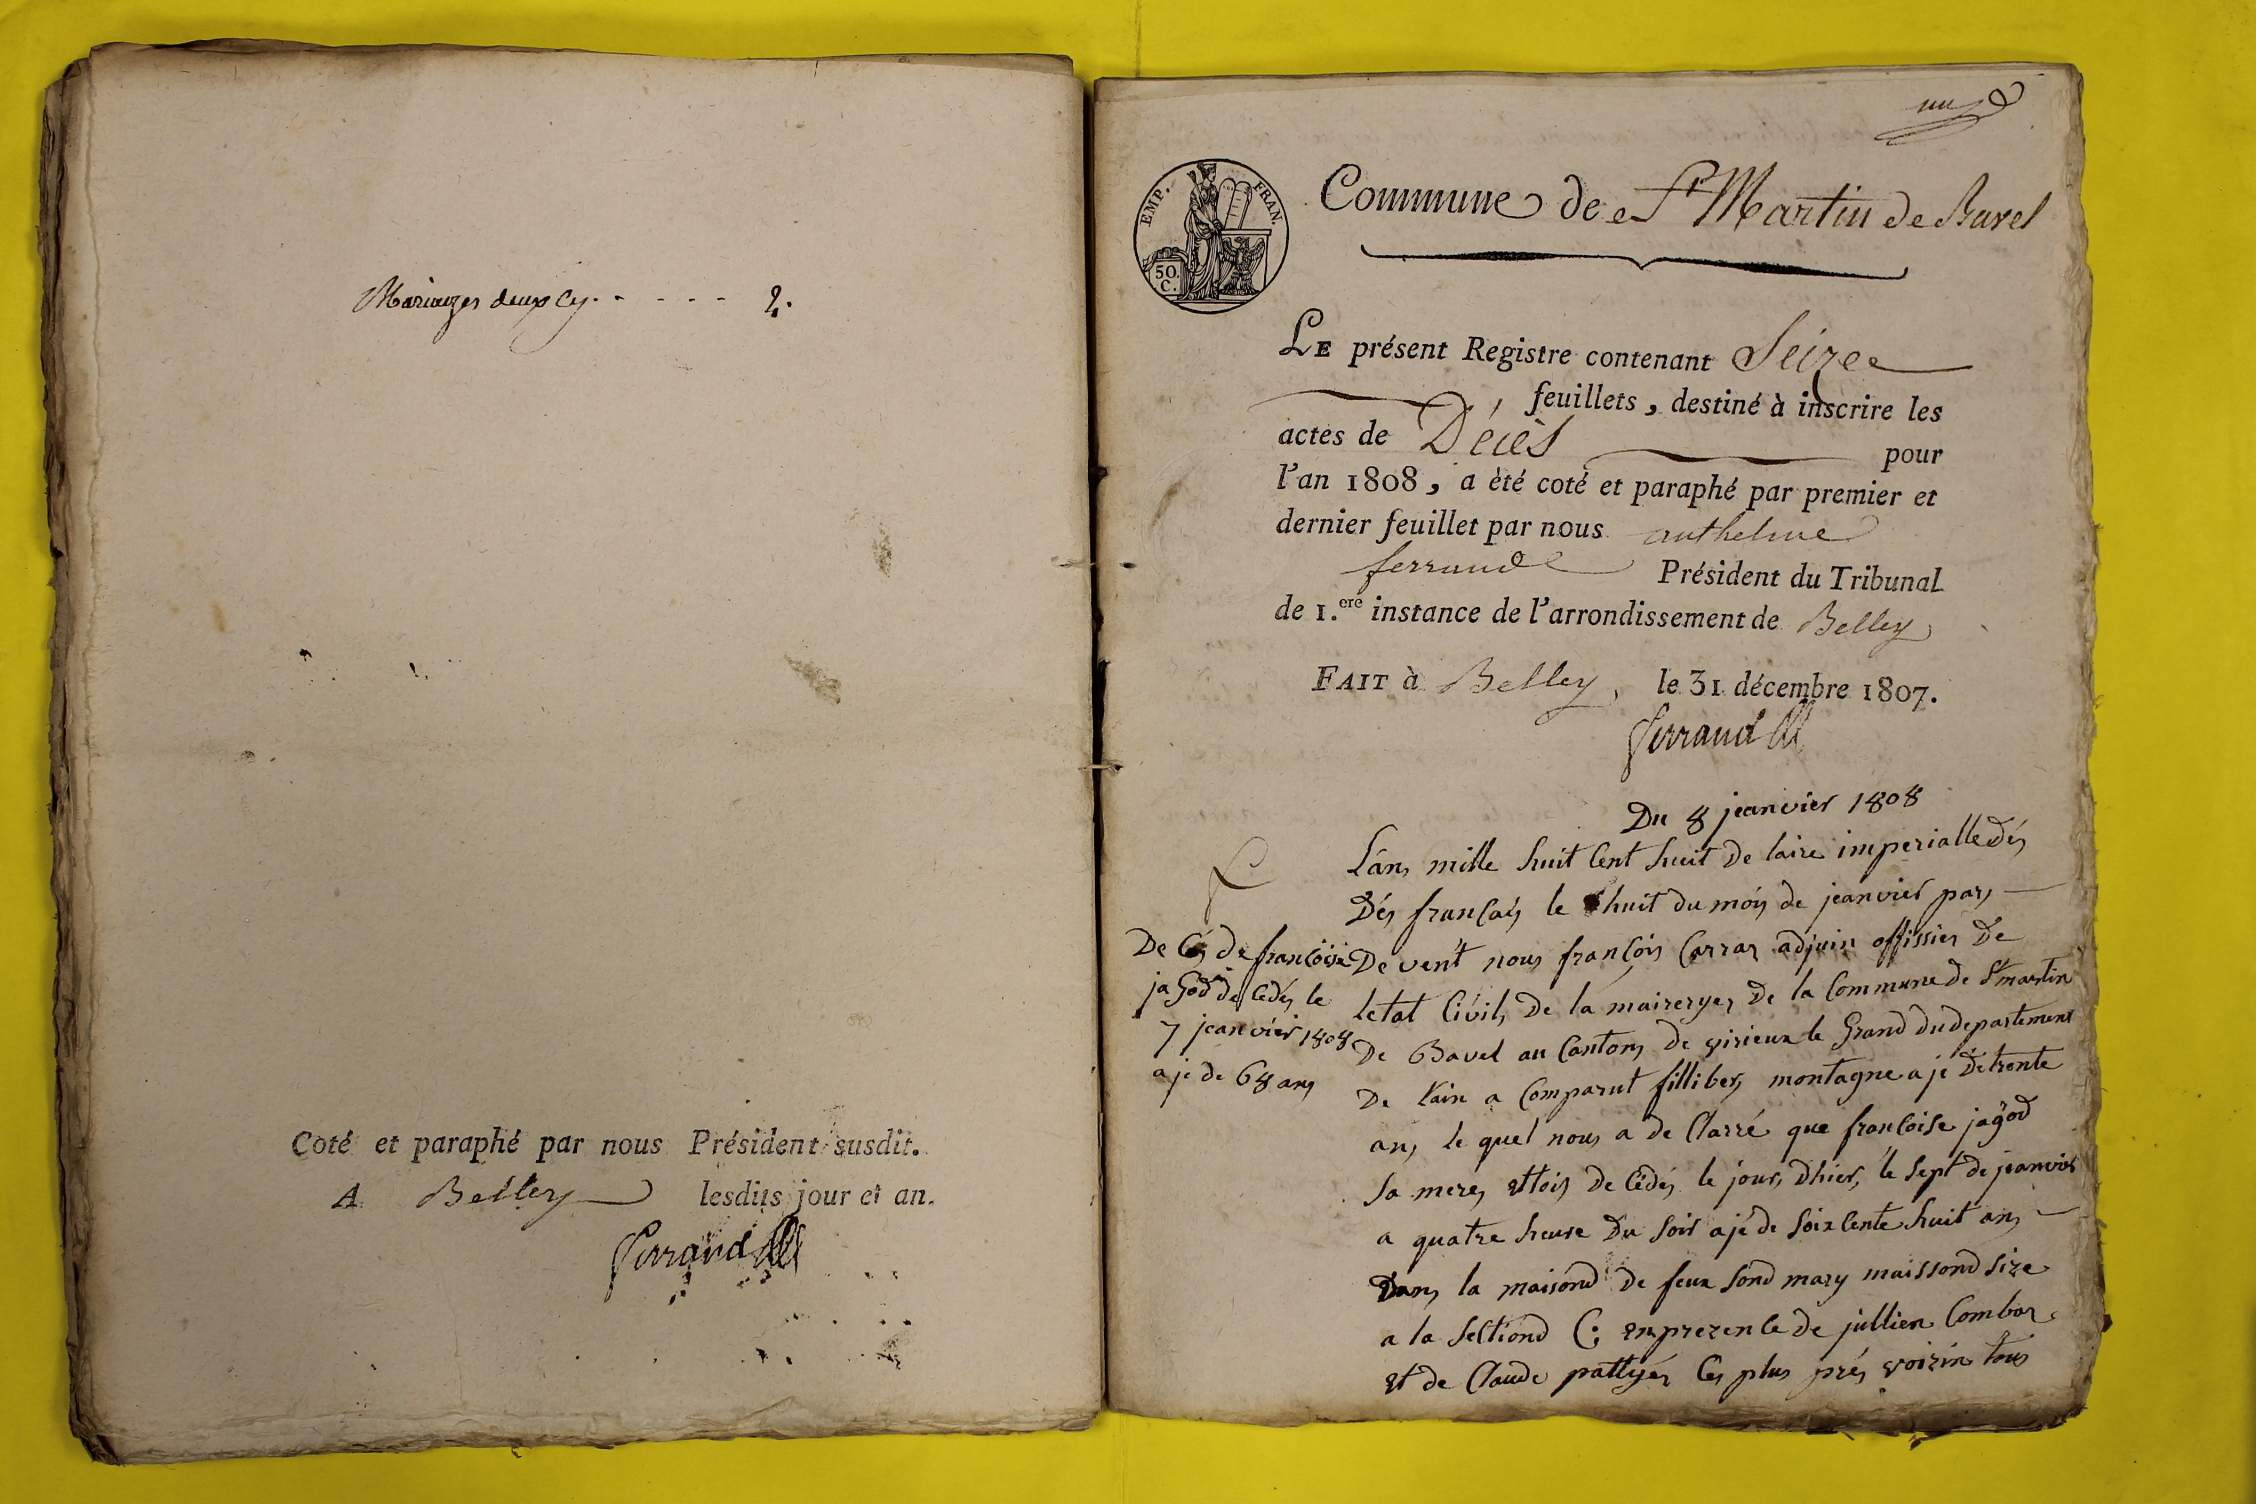 Mariazes deux cy. - - - - - 2.
Coté et paraphé par nous Président susdit.
A Belley lesdits jour et an.
Ferrand
un
EMP. FRAN.
50.
C.
Commune de St Martin de Bavel
LE présent Registre contenant Seize
feuillets, destiné à inscrire les
actes de Décès pour
l'an 1808, a èté coté et paraphé par premier et
dernier feuillet par nous anthelme
ferrand Président du Tribunal
de 1.ere instance de l'arrondissement de Belley
FAIT à Belley, le 31 décembre 1807.
Ferrand
Du 8 jeanvier 1808
De Cés de francöise
jagod de cedés le
7 jeanviér 1808
aje de 68 ans
Lán mille huit Cent huit de laire imperialle dés
Dés francais le huit du mois de jeanvier par
De vent nous francois Carrar adjuin offissier De
letat Civil De la mairerye De la Commune de St martin
De Bavel au Canton de virieux le Grand du departement
De lain a Comparut fillibers montagne aje De trente
ans le quel nous a de Clarré que francoise jagod
Sa mere ettois De Cédés le jour Dhier, le sept de jeanvier
a quatre heure Du soir ajé de Soix Cente huit ans
Dans la maisond De feux Sond mary maissond size
a la Sectiond C: en prezence de jullien Combar
et de Claude pattyer Ces plus prés voizin tous